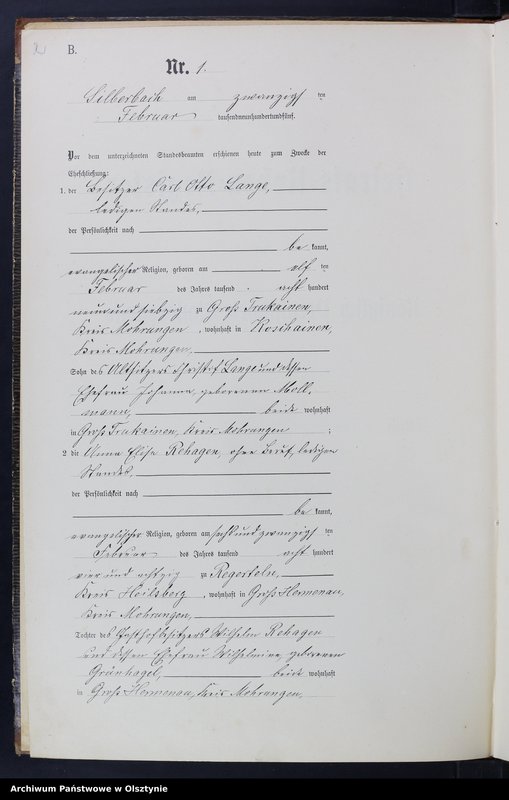 B.
Nr. 1.
Silberbach am zwanzigsten
Februar tausendneunhundertundfünf.
Vor dem unterzeichneten Standesbeamten erschienen heute zum Zwecke der
Eheschließung:
1. der Besitzer Carl Otto Lange,
ledigen Standes,
der Persönlichkeit nach
be kannt,
evangelischer Religion, geboren am elf ten
Februar des Jahres tausend acht hundert
neun und siebzig zu Groß Trukainen,
Kreis Mohrungen, wohnhaft in
Kreis Mohrungen,
Sohn des Altsitzers Christof Lange und dessen
Ehefrau Johanna, geborenen Moll,
mann, beide wohnhaft
in Groß Trukainen, Kreis Mohrungen ;
2 die Anna Elise Rehagen, ohne Beruf, ledigen
Standes,
der Persönlichkeit nach
be kannt,
evangelischer Religion, geboren am sechsundzwanzigsten
Februar des Jahres tausend acht hundert
vier und achtzig zu Regerteln,
Kreis Heilsberg, wohnhaft in Groß Hermenau,
Kreis Mohrungen,
Tochter des Gasthofbesitzers Wilhelm Rehagen
und dessen Ehefrau Wilhelmine, geborenen
Grünhagel, beide wohnhaft
in Groß Hermenau, Kreis Mohrungen,
Archiwum Państwowe w Olsztynie